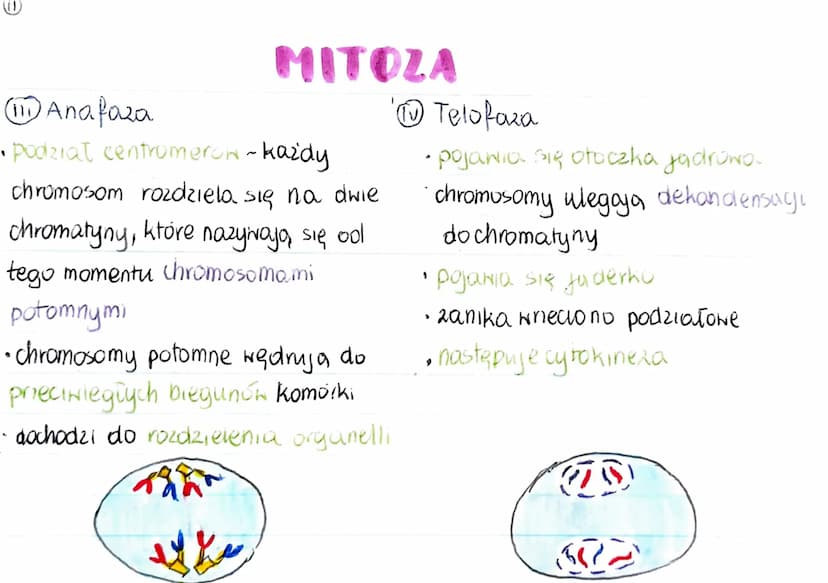 MITOZA
III Anafaza
• podział centromerów ~ każdy
chromosom rozdziela się na dwie
chromatyny, które nazywają się od
tego momentu chromosomami
potomnymi
• chromosomy potomne wędrują do
przeciwległych biegunów komórki
• dochodzi do rozdzielenia organelli
IV Telofaza
• pojawia się otoczka jądrowa
• chromosomy ulegają dekondensacji
do chromatyny
• pojawia się jąderko
• zanika wrzeciono podziałowe
• następuje cytokineza